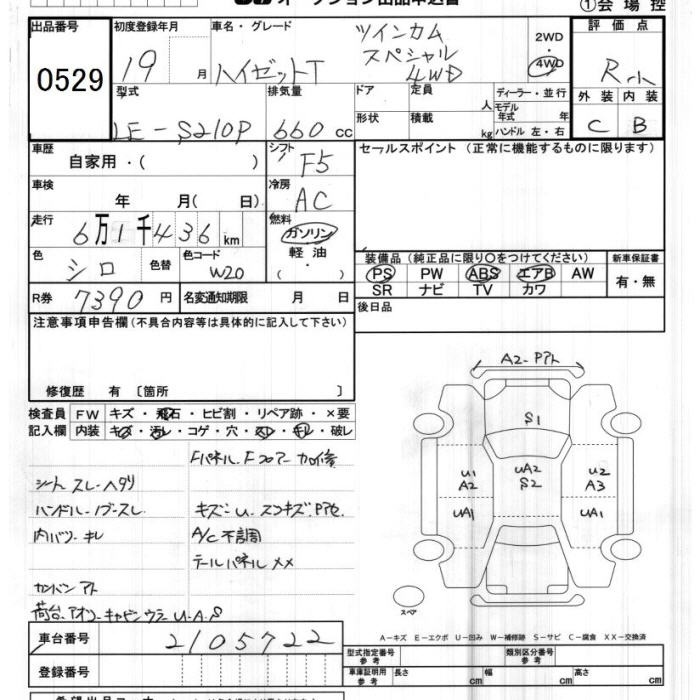 オークション出品申込書 ①会場控
出品番号 初度登録年月 車名・グレード 評価点
0529 19 月 ハイゼットT ツインカム スペシャル 4WD 2WD ・ 4WD R
外装 内装
C B
型式 排気量 ドア 定員 人 ディーラー・並行
LE-S210P 660 cc 形状 積載 kg モデル年式 年
ハンドル 左・右
車歴 シフト セールスポイント (正常に機能するものに限ります)
自家用・( ) F5
車検 冷房
年 月( 日) AC
走行 燃料
6万1千436 km ガソリン
軽油
・( )
色 色替 色コード
シロ W20
装備品 (純正品に限り○をつけてください) 新車保証書
PS PW ABS エアB AW 有・無
SR ナビ TV カワ
R券 7390円 名変通知期限 月 日 後日品
注意事項申告欄(不具合内容等は具体的に記入して下さい)
修復歴 有 〔箇所 〕
検査員 FW キズ・飛石・ヒビ割・リペア跡・×要
記入欄 内装 キズ・汚レ・コゲ・穴・スレ・キレ・破レ
A2-Pアト
S1
U1 UA2 U2
A2 S2 A3
UA1 UA1
スペア
Fパネル.Fフロアー加修
シート スレ.ヘタリ
ハンドル.ノブ.スレ キズ.U.
内バリ.キレ A/C不調
テールパネルXX
カンバンアト
荷台.アオリ.キャビンウラ U.A.S
A-キズ E-エクボ U-凹み W-補修跡 S-サビ C-腐食 XX-交換済
車台番号 2105722
型式指定番号 参考 類別区分番号 参考
登録番号 車庫証明用 参考 長さ cm 幅 cm 高さ cm